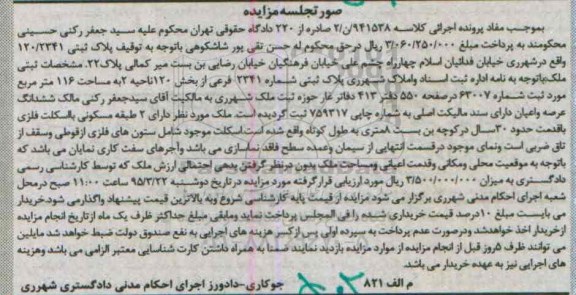 صورتجلسه مزایده
بموجب مفاد پرونده اجرائی کلاسه ۹۴۱۵۳۸/ن/۲ صادره از ۲۲۰ دادگاه حقوقی تهران محکوم علیه سید جعفر رکنی حسینی
محکومند به پرداخت مبلغ ۳/۰۶۰/۲۵۰/۰۰۰ ریال درحق محکوم له حسن تقی پور شاشکوهی باتوجه به توقیف پلاک ثبتی ۱۲۰/۲۳۴۱
واقع درشهرری خیابان فدائیان اسلام چهارراه چشم علی خیابان فرهنگیان خیابان رضایی بن بست میر کمالی پلاک۲۲. مشخصات ثبتی
ملک:باتوجه به نامه اداره ثبت اسناد واملاک شهرری پلاک ثبتی شماره ۲۳۴۱ فرعی از بخش ۱۲۰ناحیه ۲به مساحت ۱۱۶ متر مربع
مورد ثبت شماره ۶۳۰۰۷ درصفحه ۵۵۰ دفتر ۴۱۳ دفاتر غاز حوزه ثبت ملک شهرری به مالکیت آقای سیدجعفر رکنی مالک ششدانگ
عرصه واعیان دارای سند مالیکت اصلی به شماره چاپی ۷۵۹۳۱۷ ثبت گردیده است. ملک مورد نظر دارای ۲ طبقه مسکونی بااسکلت فلزی
باقدمت حدود ۳۰سال درکوچه بن بست ۸متری به طول کوتاه واقع شده است.اسکلت موجود شامل ستون های فلزی ازقوطی وسقف از
تاق ضربی است ونمای موجود درقسمت انتهایی از سیمان وعمده سطح فاقد نماسازی می باشد وآجرهای سفت کاری نمایان می باشد که
باتوجه به موقعیت محلی ومکانی وقدمت اعیانی ومساحت ملک بدون در نظر گرفتن بدهی احتمالی ارزش ملک که توسط کارشناسی رسمی
دادگستری به میزان ۳/۵۰۰/۰۰۰/۰۰۰ ریال مورد ارزیابی قرار گرفته مورد مزایده در تاریخ دوشنبه ۹۵/۳/۲۲ ساعت ۱۱:۰۰ صبح درمحل
شعبه اجرای احکام مدنی شهرری برگزار می شود .مزایده از قیمت پایه کارشناسی شروع وبه بالاترین قیمت پیشنهاد واگذارمی شود.خریدار
می بایست مبلغ ۱۰درصد قیمت خریداری شده را فی المجلس پرداخت نماید ومابقی مبلغ حداکثر ظرف یک ماه ازتاریخ انجام مزایده
ازخریدار اخذ خواهدشد ودرصورت عدم پرداخت به سپرده اولی پس ازکسر هزینه های اجرایی به نفع صندوق دولت ضبط خواهد شد مایلین
می توانند ظرف ۵روز قبل از انجام مزایده از موارد مزایده بازدید نمایند. ضمنا به همراه داشتن کارت شناسایی معتبر الزامی می باشد وهزینه
های اجرایی نیز به عهده خریدار می باشد.
م الف ۸۲۱ جوکاری-دادورز اجرای احکام مدنی دادگستری شهرری